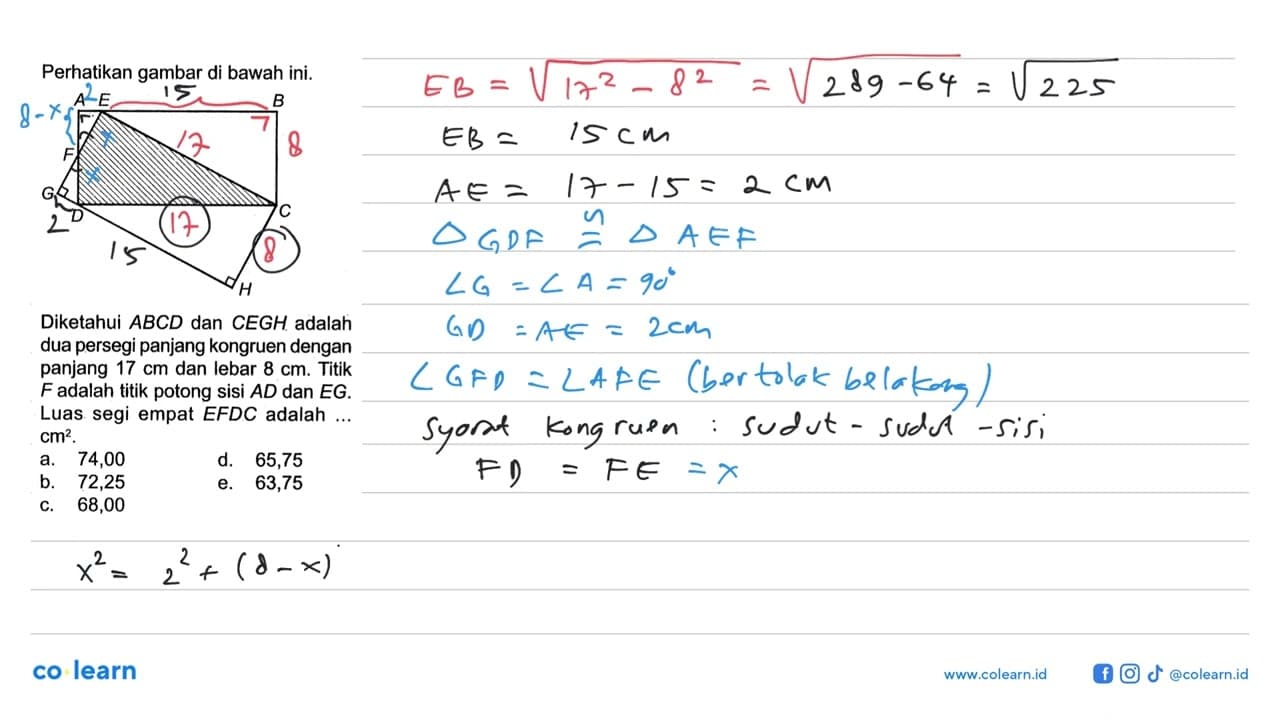 Perhatikan gambar di bawah ini.
A 2 E 15 B
8-x
F x 17 8
x
G
2 D 17 C
15 8
H
Diketahui ABCD dan CEGH adalah
dua persegi panjang kongruen dengan
panjang 17 cm dan lebar 8 cm. Titik
F adalah titik potong sisi AD dan EG.
Luas segi empat EFDC adalah ...
cm².
a. 74,00 d. 65,75
b. 72,25 e. 63,75
c. 68,00
x² = 2² + (8-x)
EB = √17² - 8² = √289-64 = √225
EB = 15 cm
AE = 17-15 = 2 cm
△ GDF ≅ △ AEF
∠G = ∠A = 90°
GD = AE = 2cm
∠GFD = ∠AFE (bertolak belakang)
syarat kongruen : sudut - sudut - sisi
FD = FE = x
co learn
www.colearn.id @colearn.id